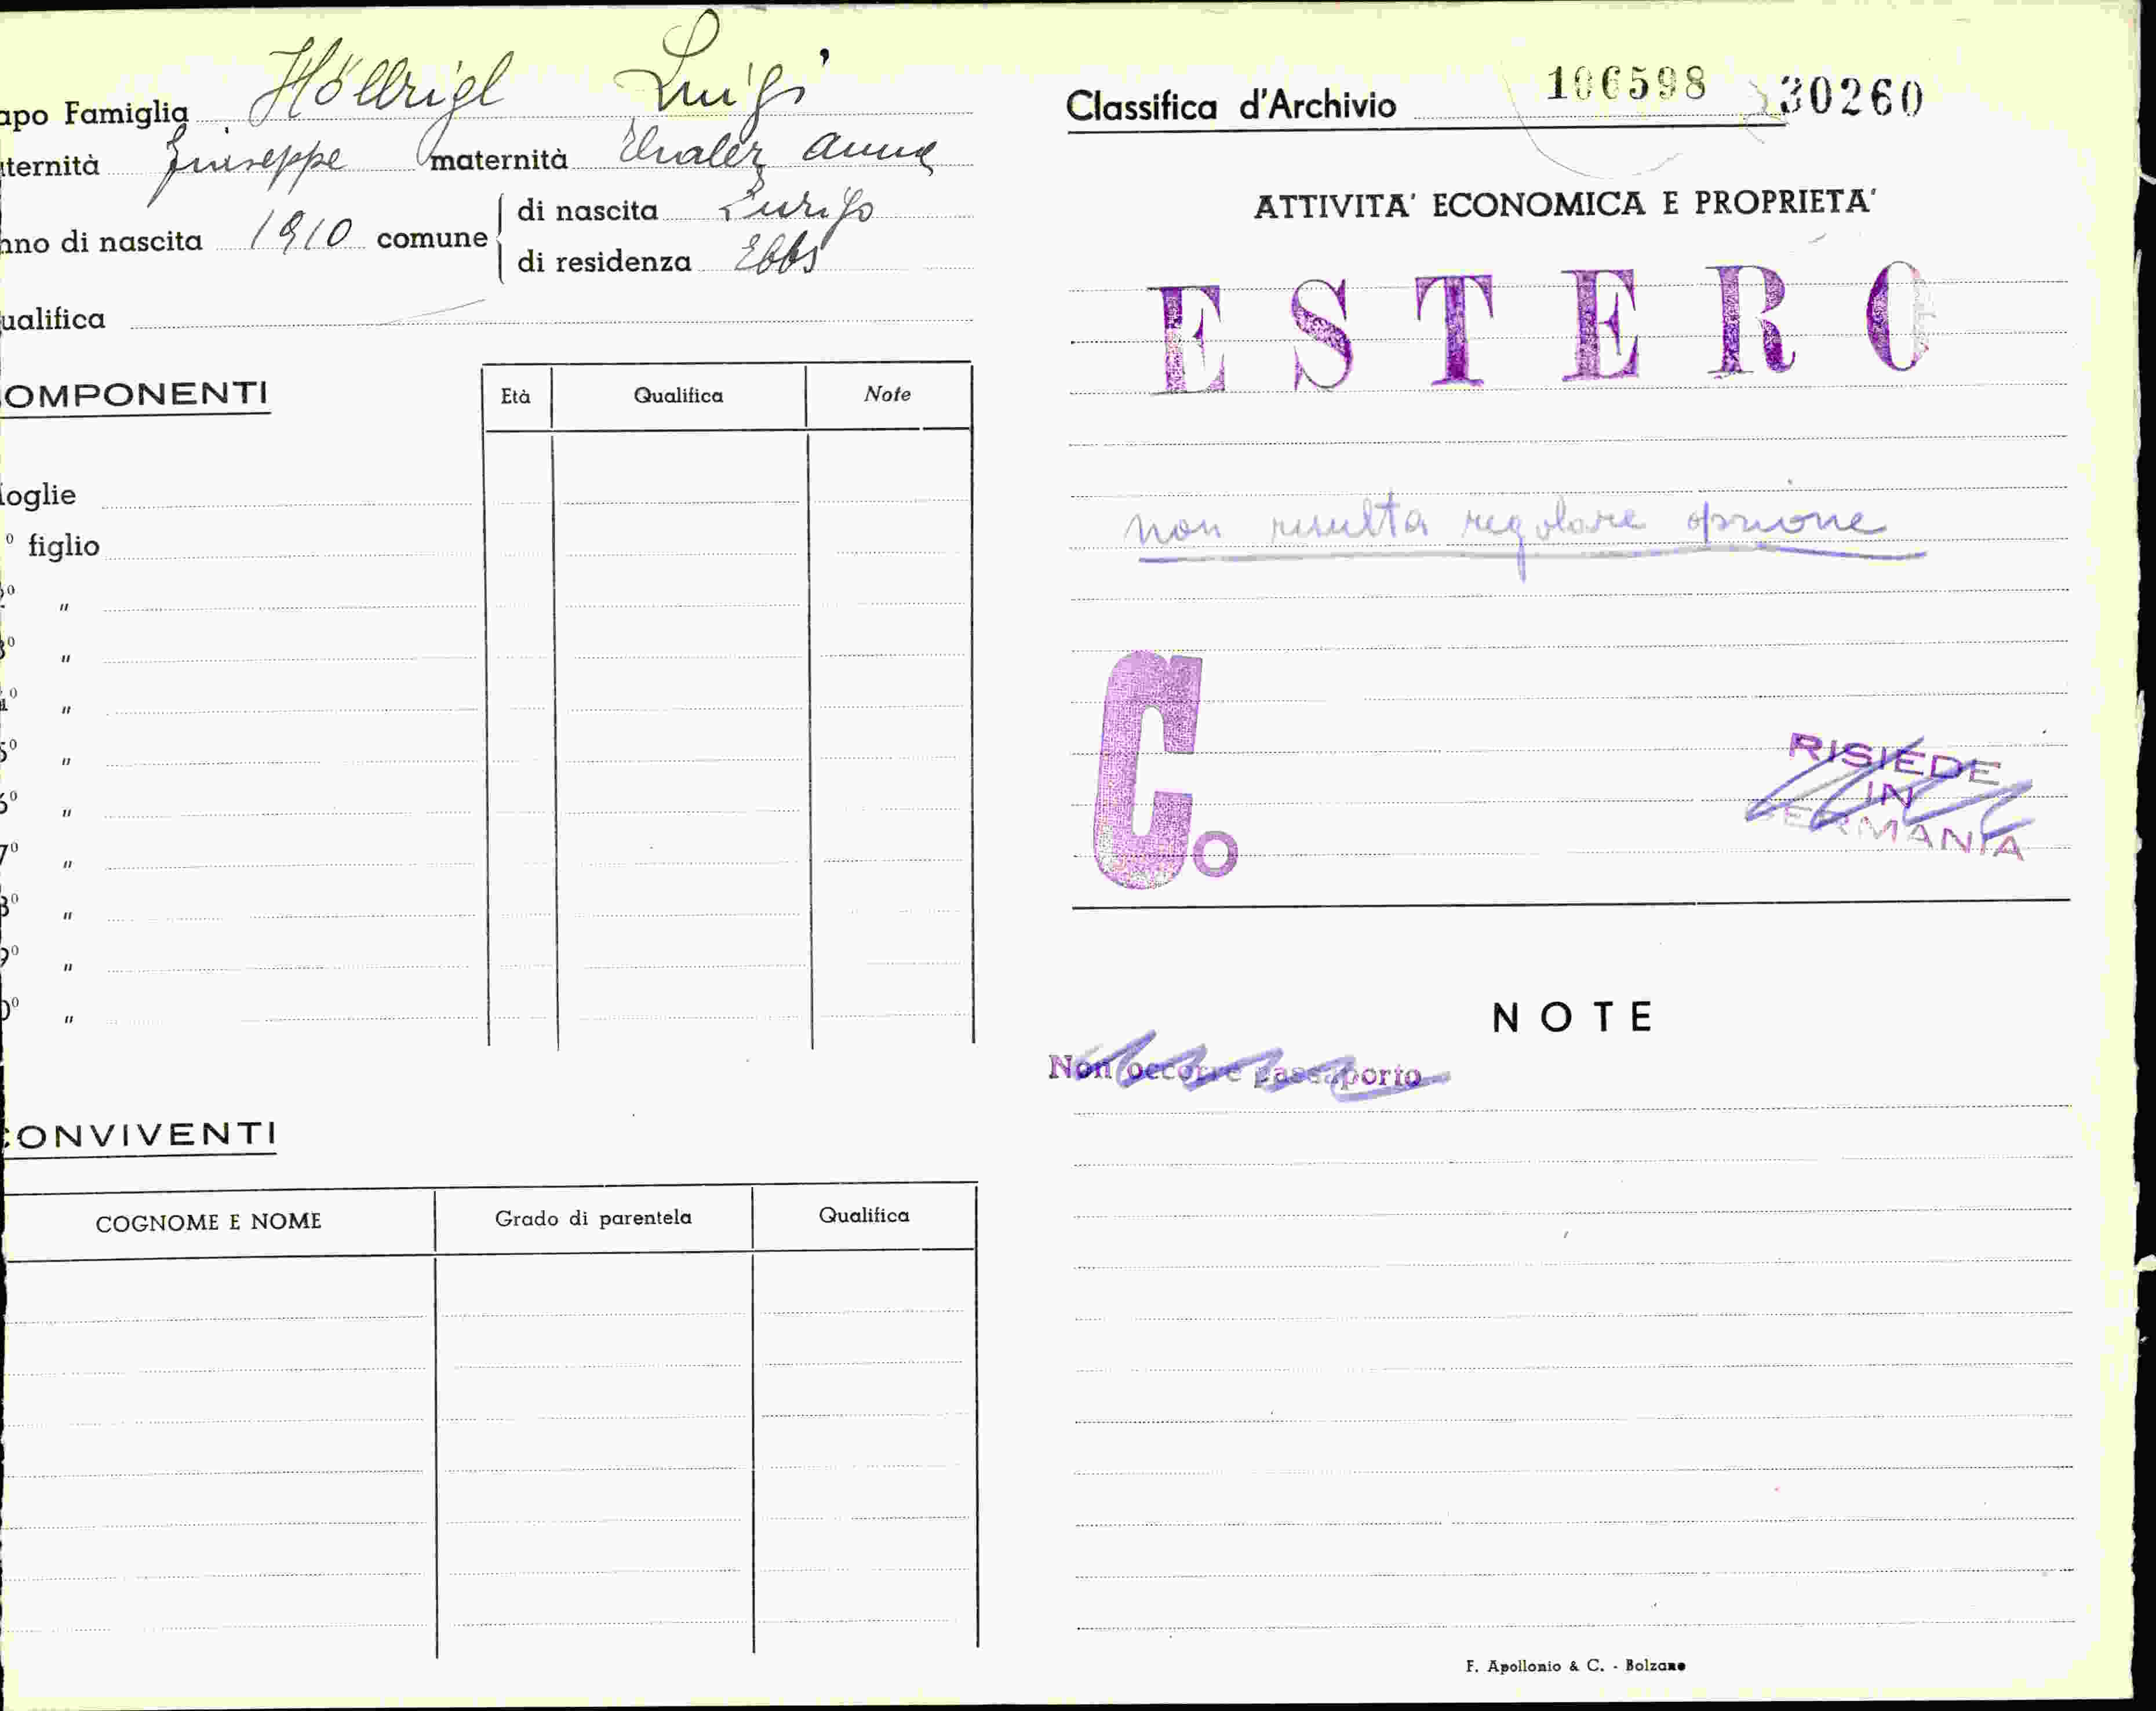 apo Famiglia Höllrigl Luigi
ternità Giuseppe maternità Thaler Anna
nno di nascita 1910 comune di nascita Zurigo
di residenza Ebbs
ualifica
OMPONENTI
Età Qualifica Note
oglie
° figlio
"
3° "
4° "
5° "
6° "
7° "
8° "
9° "
0° "
CONVIVENTI
COGNOME E NOME Grado di parentela Qualifica
Classifica d'Archivio 106598 30260
ATTIVITA' ECONOMICA E PROPRIETA'
ESTERO
non risulta regolare opzione
Co
RISIEDE
IN
GERMANIA
NOTE
Non occorre passaporto
F. Apollonio & C. - Bolzano